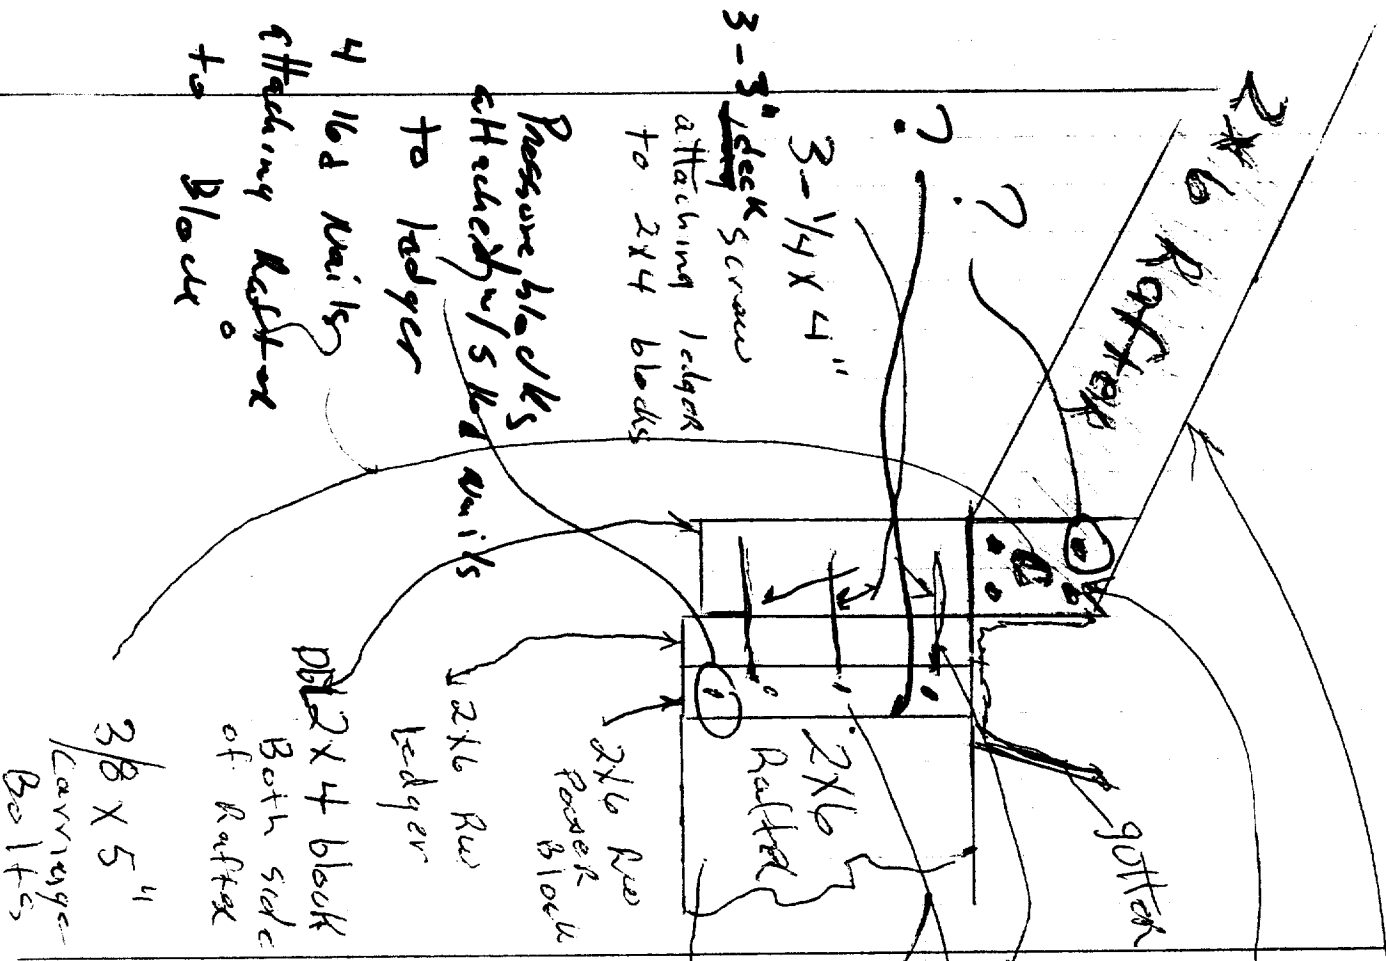 2x6 Rafter
?
?
3-1/4 x 4"
3-3" deck screw
attaching ledger
to 2x4 blocks
Pressure blocks
attached w/ 16d nails
to ledger
4 16d Nails
attaching Rafter
to Block
gutter
2x6
Rafter
2x6 Rw
Block
2x6 Rw
Ledger
Dbl 2x4 block
Both side
of Rafter
3/8 x 5"
Carriage
Bolts